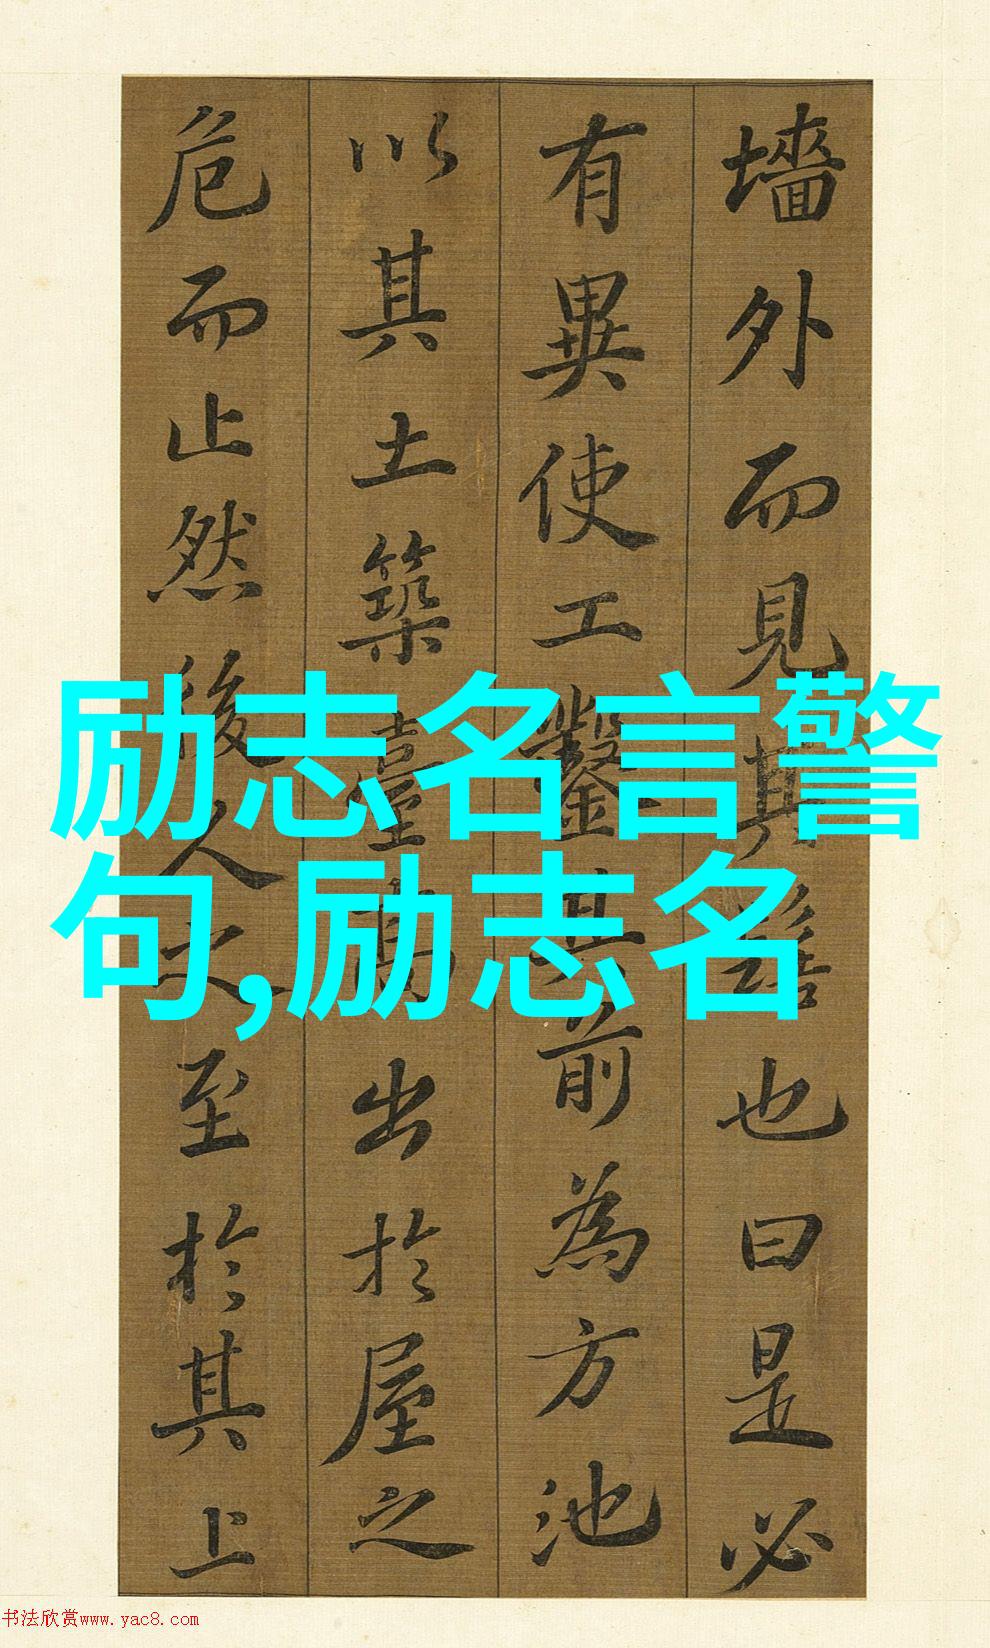 墙外而見其髻也曰是必
有異使工鑿其前為方池
以其土築臺高出於屋之
危而止然後人之至於其上
励志名言警
句,励志名
书法欣赏www.yac8.com